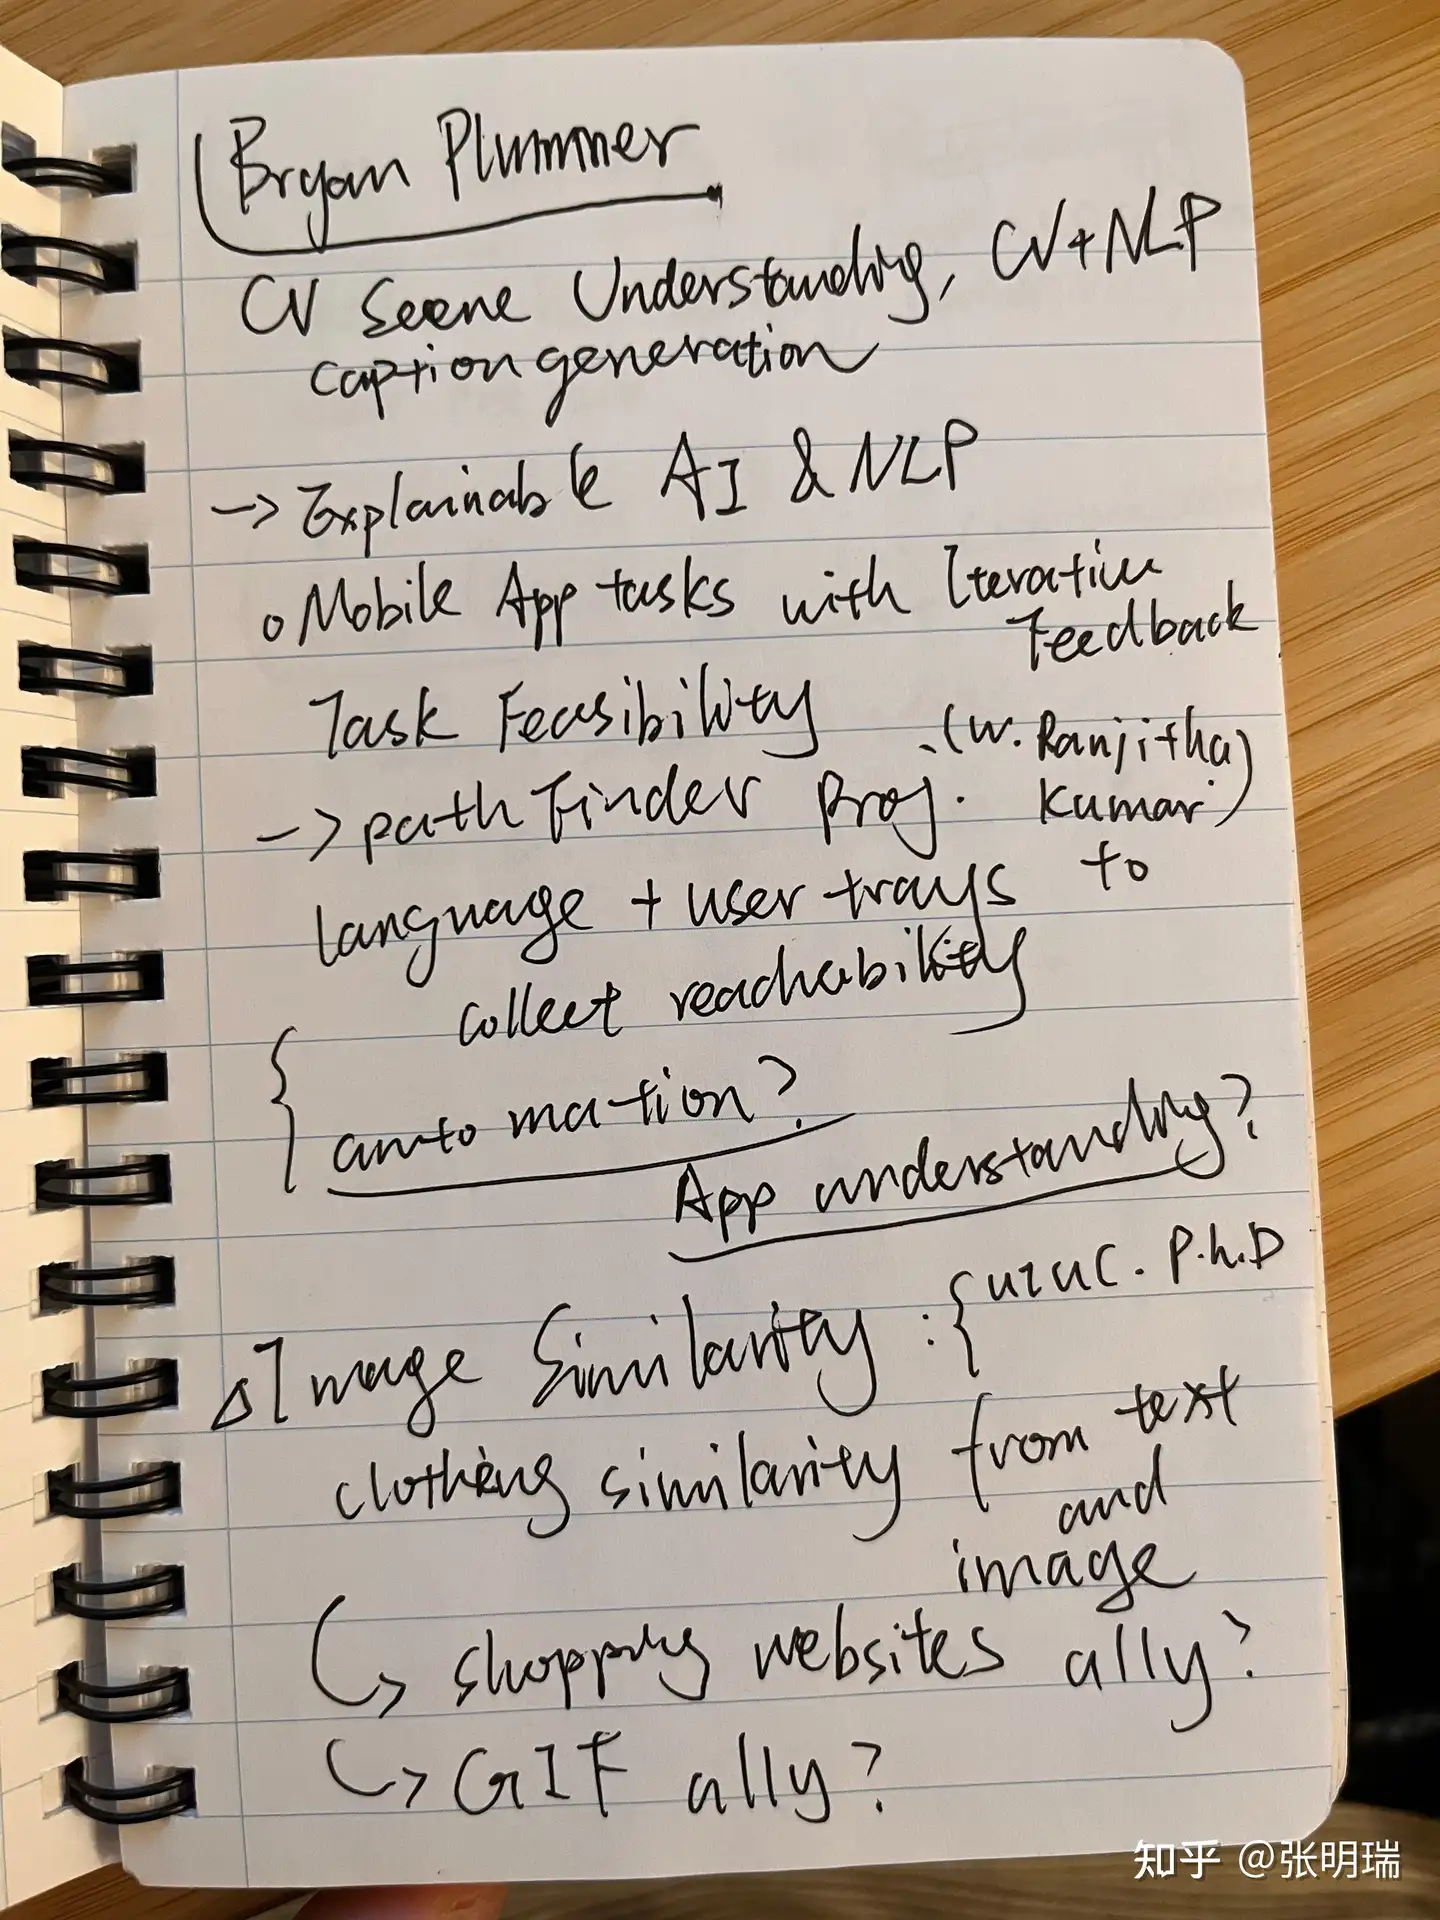 Bryan Plummer
CV Scene Understanding, CV+NLP
caption generation
→ Explainable AI & NLP
o Mobile App tasks with Iterative
Feedback
Task Feasibility
→ path Finder Proj. (w. Ranjitha
Kumar)
language + user trays to
collect reachability
{ automation?
App understanding?
△ Image Similarity : { UIUC. P.h.D
clothing similarity from text
and
image
↳ shopping websites ally?
↳ GIF ally?
知乎 @张明瑞